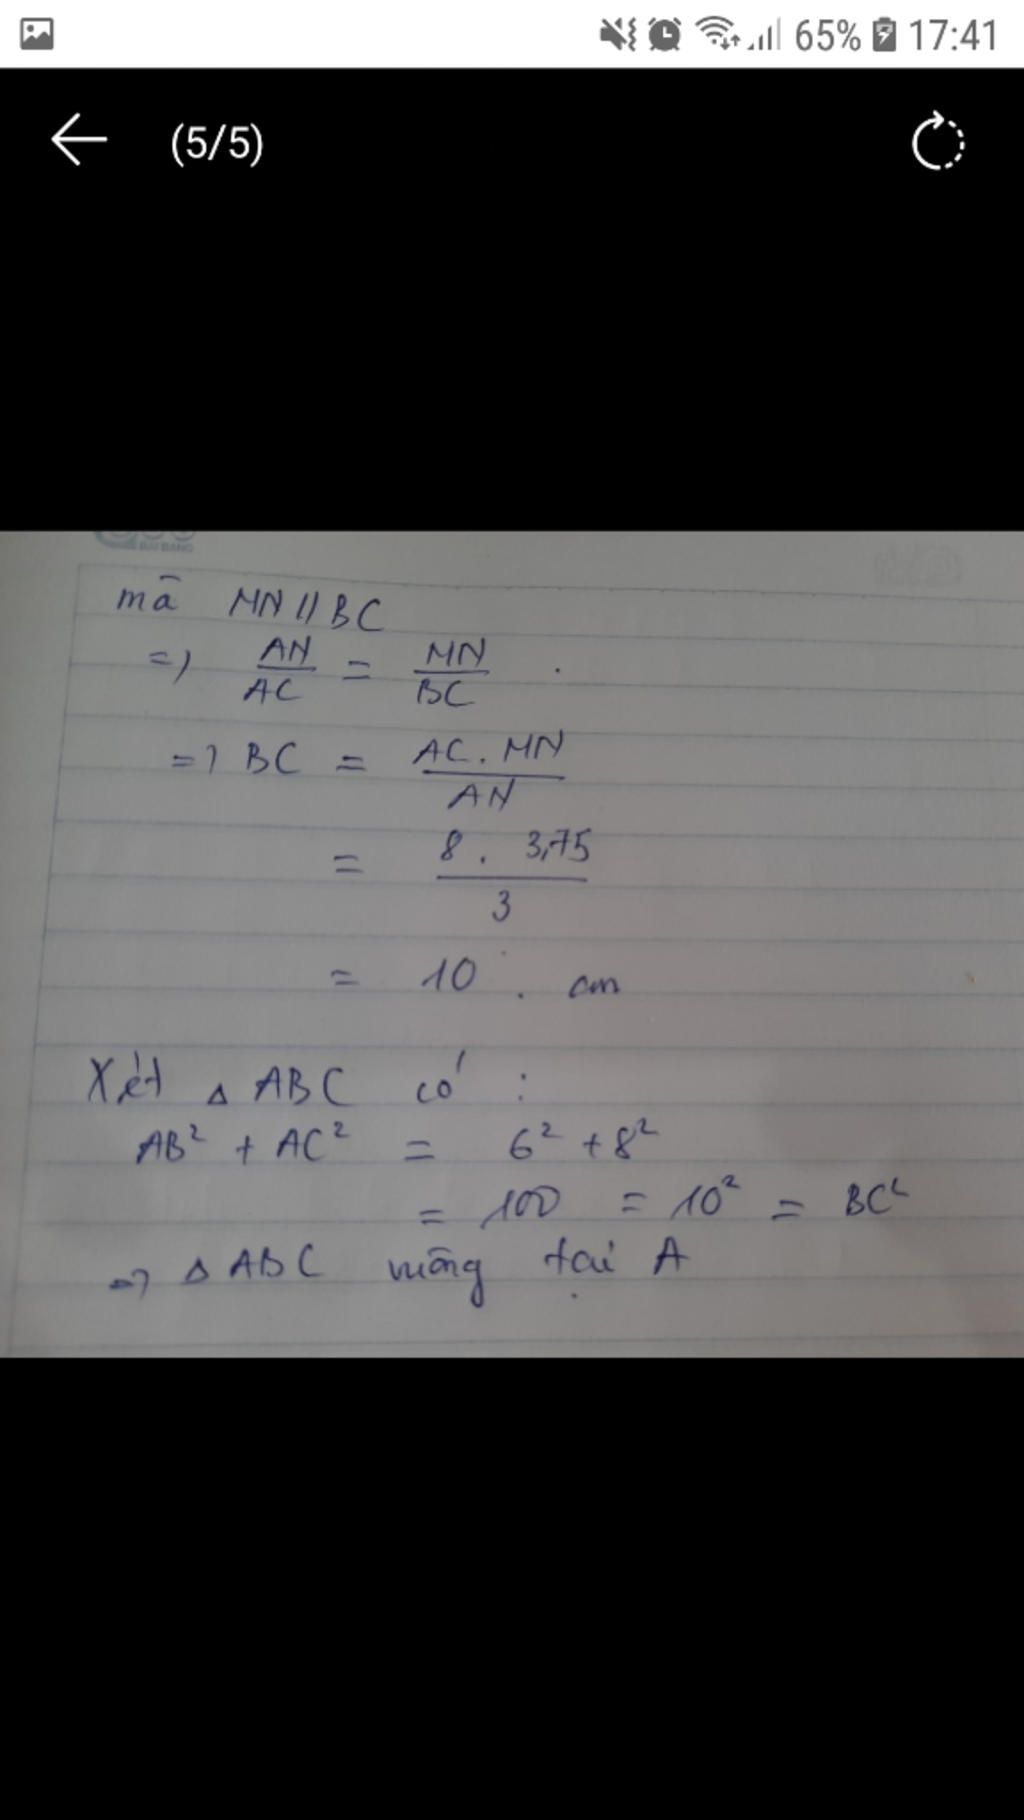 65% 17:41
(5/5)
BÃI BẰNG
mà MN // BC
=> AN/AC = MN/BC .
=> BC = AC . MN/AN
= 8 . 3,75/3
= 10 . cm
Xét △ ABC có :
AB² + AC² = 6² + 8²
= 100 = 10² = BC²
=> △ ABC vuông tại A